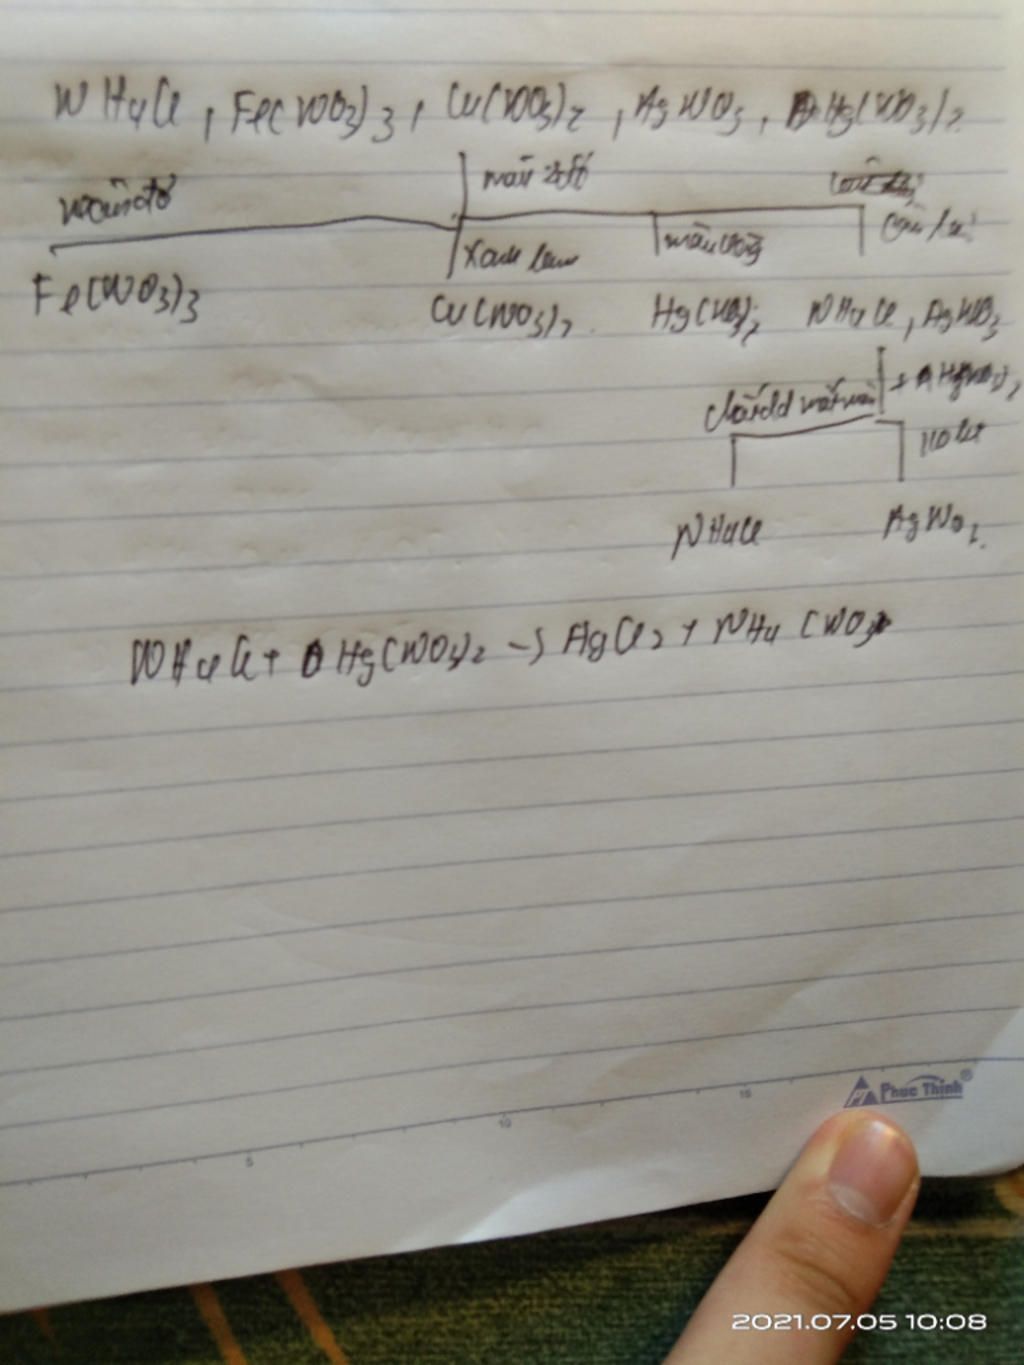 NH4Cl, Fe(NO3)3, Cu(NO3)2, AgNO3, Hg(NO3)2
màu sắc
nâu đỏ
Xanh lam
màu vàng
còn lại
Fe(NO3)3
Cu(NO3)2
Hg(NO3)2
NH4Cl, AgNO3
+ Hg(NO3)2
mất màu
NH4Cl
AgNO3
NH4Cl + Hg(NO3)2 → AgCl2 + NH4(NO3)
5 10 15
Phuc Thinh®
2021.07.05 10:08